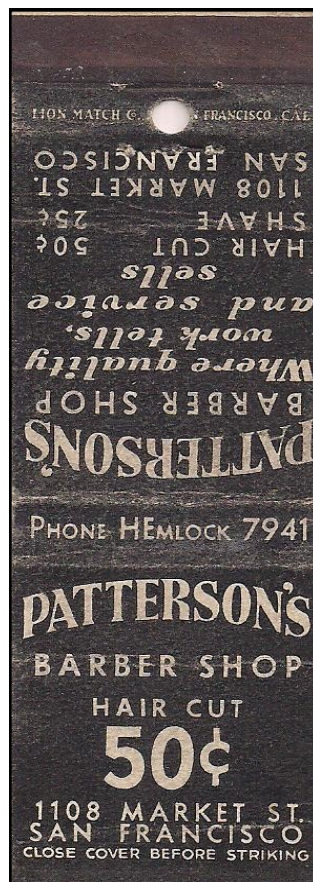 LION MATCH C N FRANCISCO, CAL
PATTERSON'S
BARBER SHOP
Where quality
work tells,
and service
sells
HAIR CUT 50¢
SHAVE 25¢
1108 MARKET ST.
SAN FRANCISCO
PHONE HEMLOCK 7941
PATTERSON'S
BARBER SHOP
HAIR CUT
50¢
1108 MARKET ST.
SAN FRANCISCO
CLOSE COVER BEFORE STRIKING